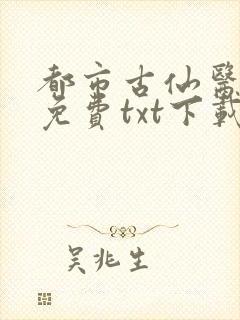 都市古仙醫
免費txt下載
吴兆生